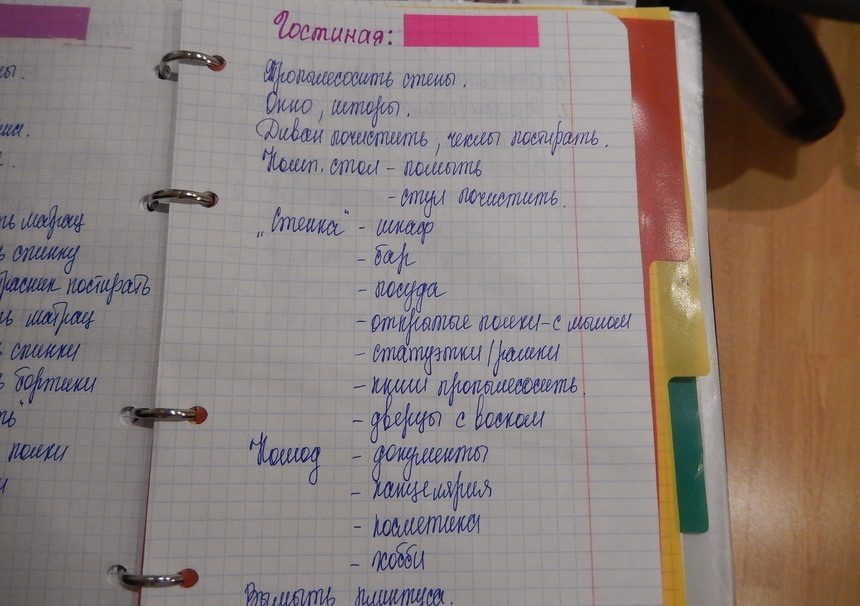 Гостиная:
Пропылесосить стены.
Окно, шторы.
Диван почистить, чехлы постирать.
Комп. стол - помыть
- стул почистить.
„Стенка" - шкаф
- бар
- посуда
- открытые полки - с мылом
- статуэтки/рамки
- книги пропылесосить.
- дверцы с воском
Комод - документы
- канцелярия
- косметика
- хобби
Вымыть плинтуса.
матрац
спинку
постирать
матрац
спинки
бортики
полки